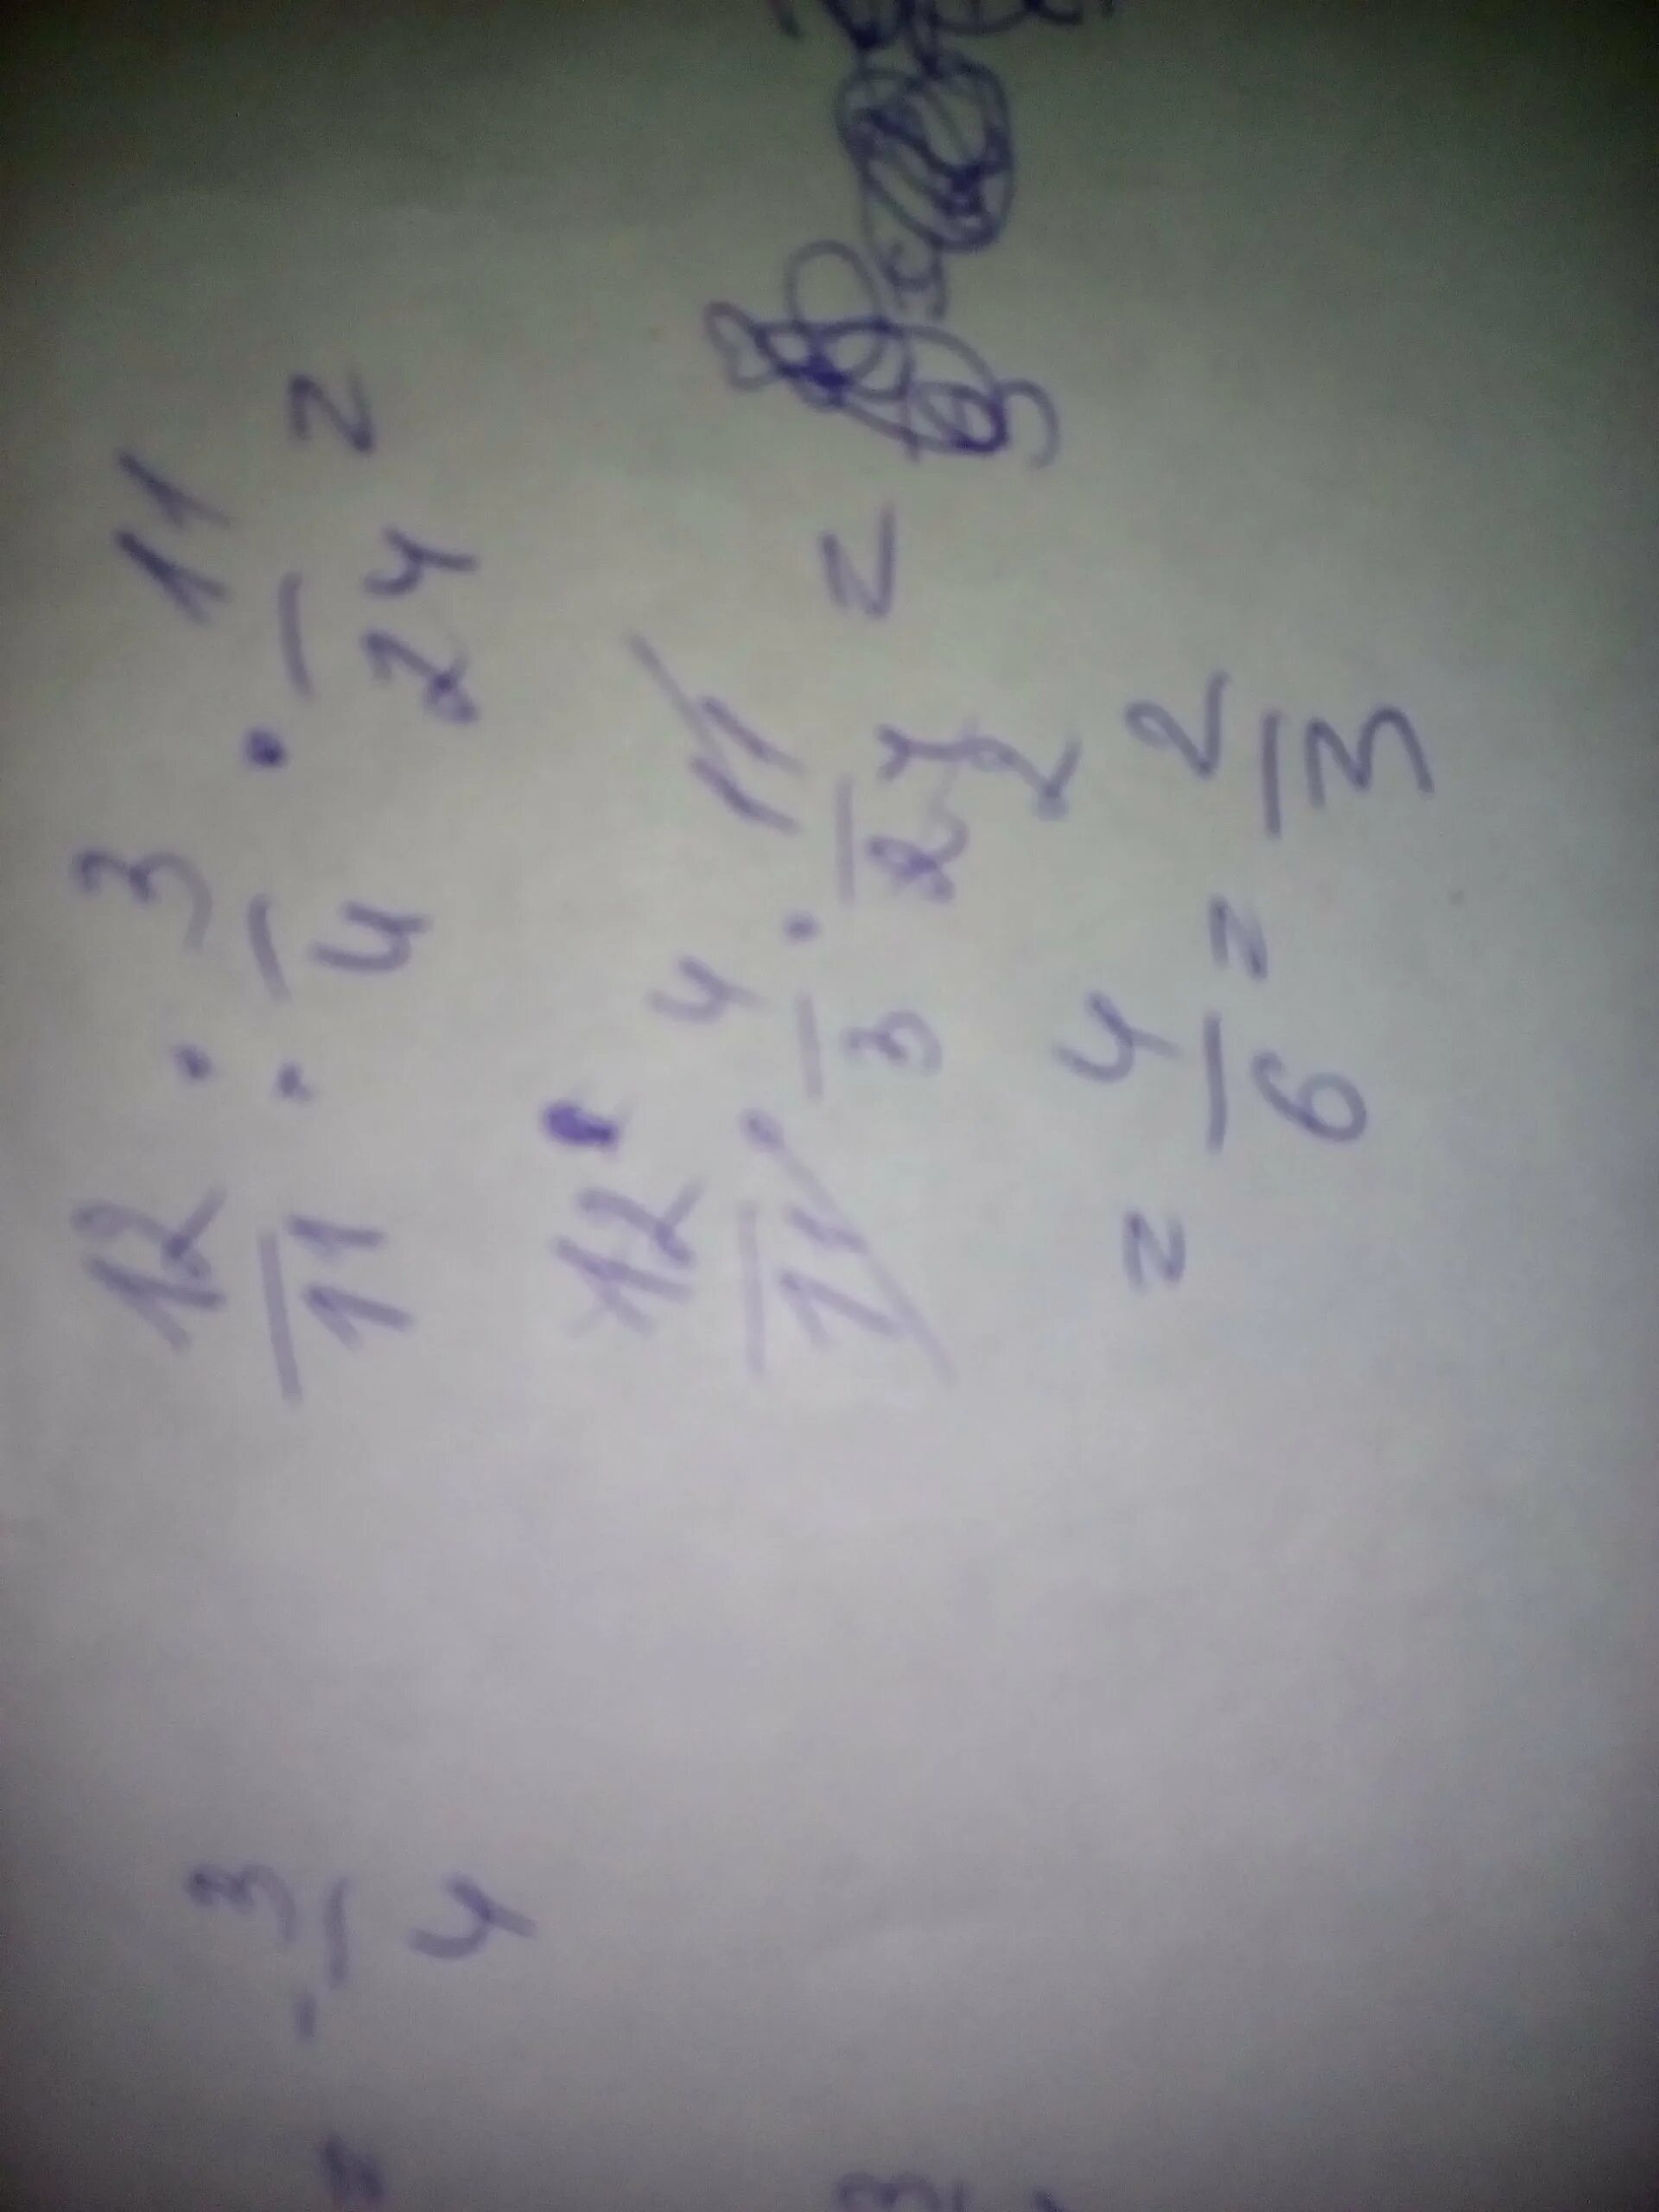 12/11 : 3/4 · 11/24 =
12/11 · 4/3 · 11/24 2 =
= 4/6 = 2/3
= - 3/4
3